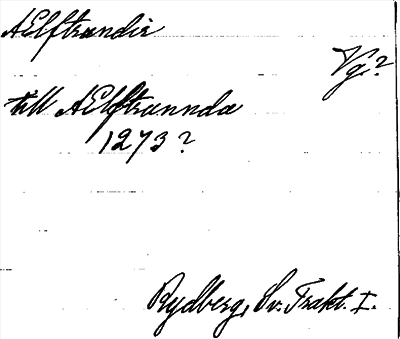 AElftrandir
Vg?
till AElftrannda
1273?
Rydberg, Sv. Trakt. I.